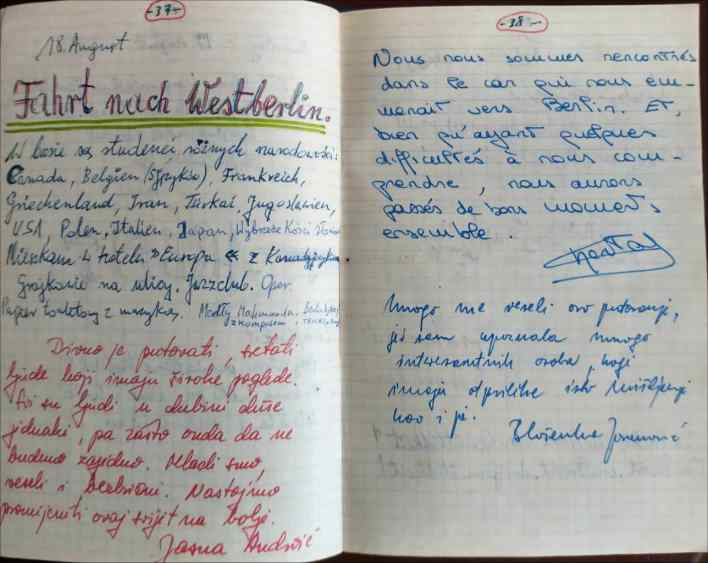 -37-
18. August
Fahrt nach Westberlin.
W busie są studenci różnych narodowości:
Canada, Belgien (Afryka), Frankreich,
Griechenland, Iran, Türkai, Jugoslavien,
USA, Polen, Italien, Japan, Wybrzeże Kości Słon.
Mieszkam w hotelu »Europa« z Kanadyjką
Grajkowie na ulicy. Jazzclub. Oper.
Papier toaletowy z muzyką. Modły
z kompasem,
Divno je putovati, sretati
ljude koji imaju široke poglede.
Svi su ljudi u dubini duše
jednaki, pa zašto onda da ne
budemo zajedno. Mladi smo,
veseli i bezbrižni. Nastojmo
promijeniti ovaj svijet na bolje.
Jasna Andrić
-38-
Nous nous sommes rencontrés
dans le car qui nous em-
menait vers Berlin. Et,
bien qu'ayant quelques
difficultés à nous com-
prendre, nous aurons
passés de bons moments
ensemble.
Mnogo me veseli ovo putovanje,
jer sam upoznala mnogo
interesantnih osoba, koji
imaju otprilike isto mišljenje
kao i ja.
Blaženka